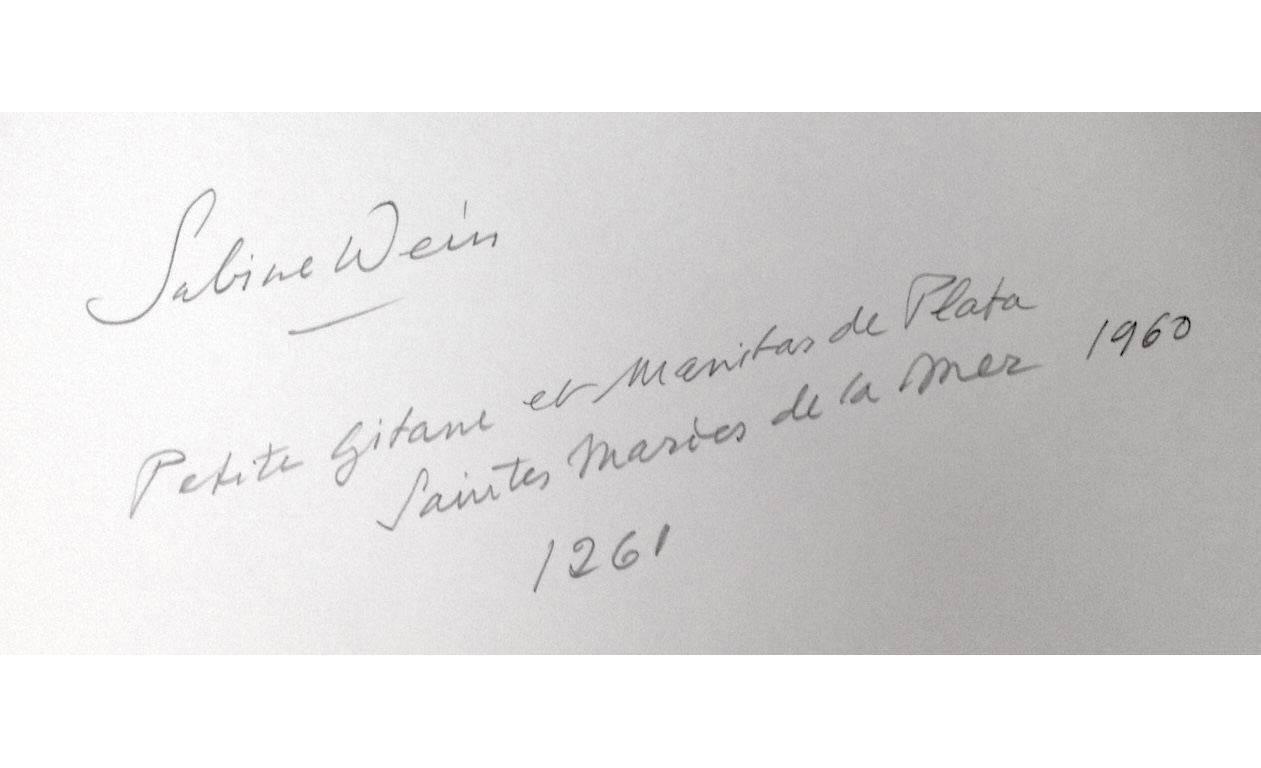 Sabine Wein
Petite Gitane et Manitas de Plata
Saintes Maries de la Mer 1960
1261